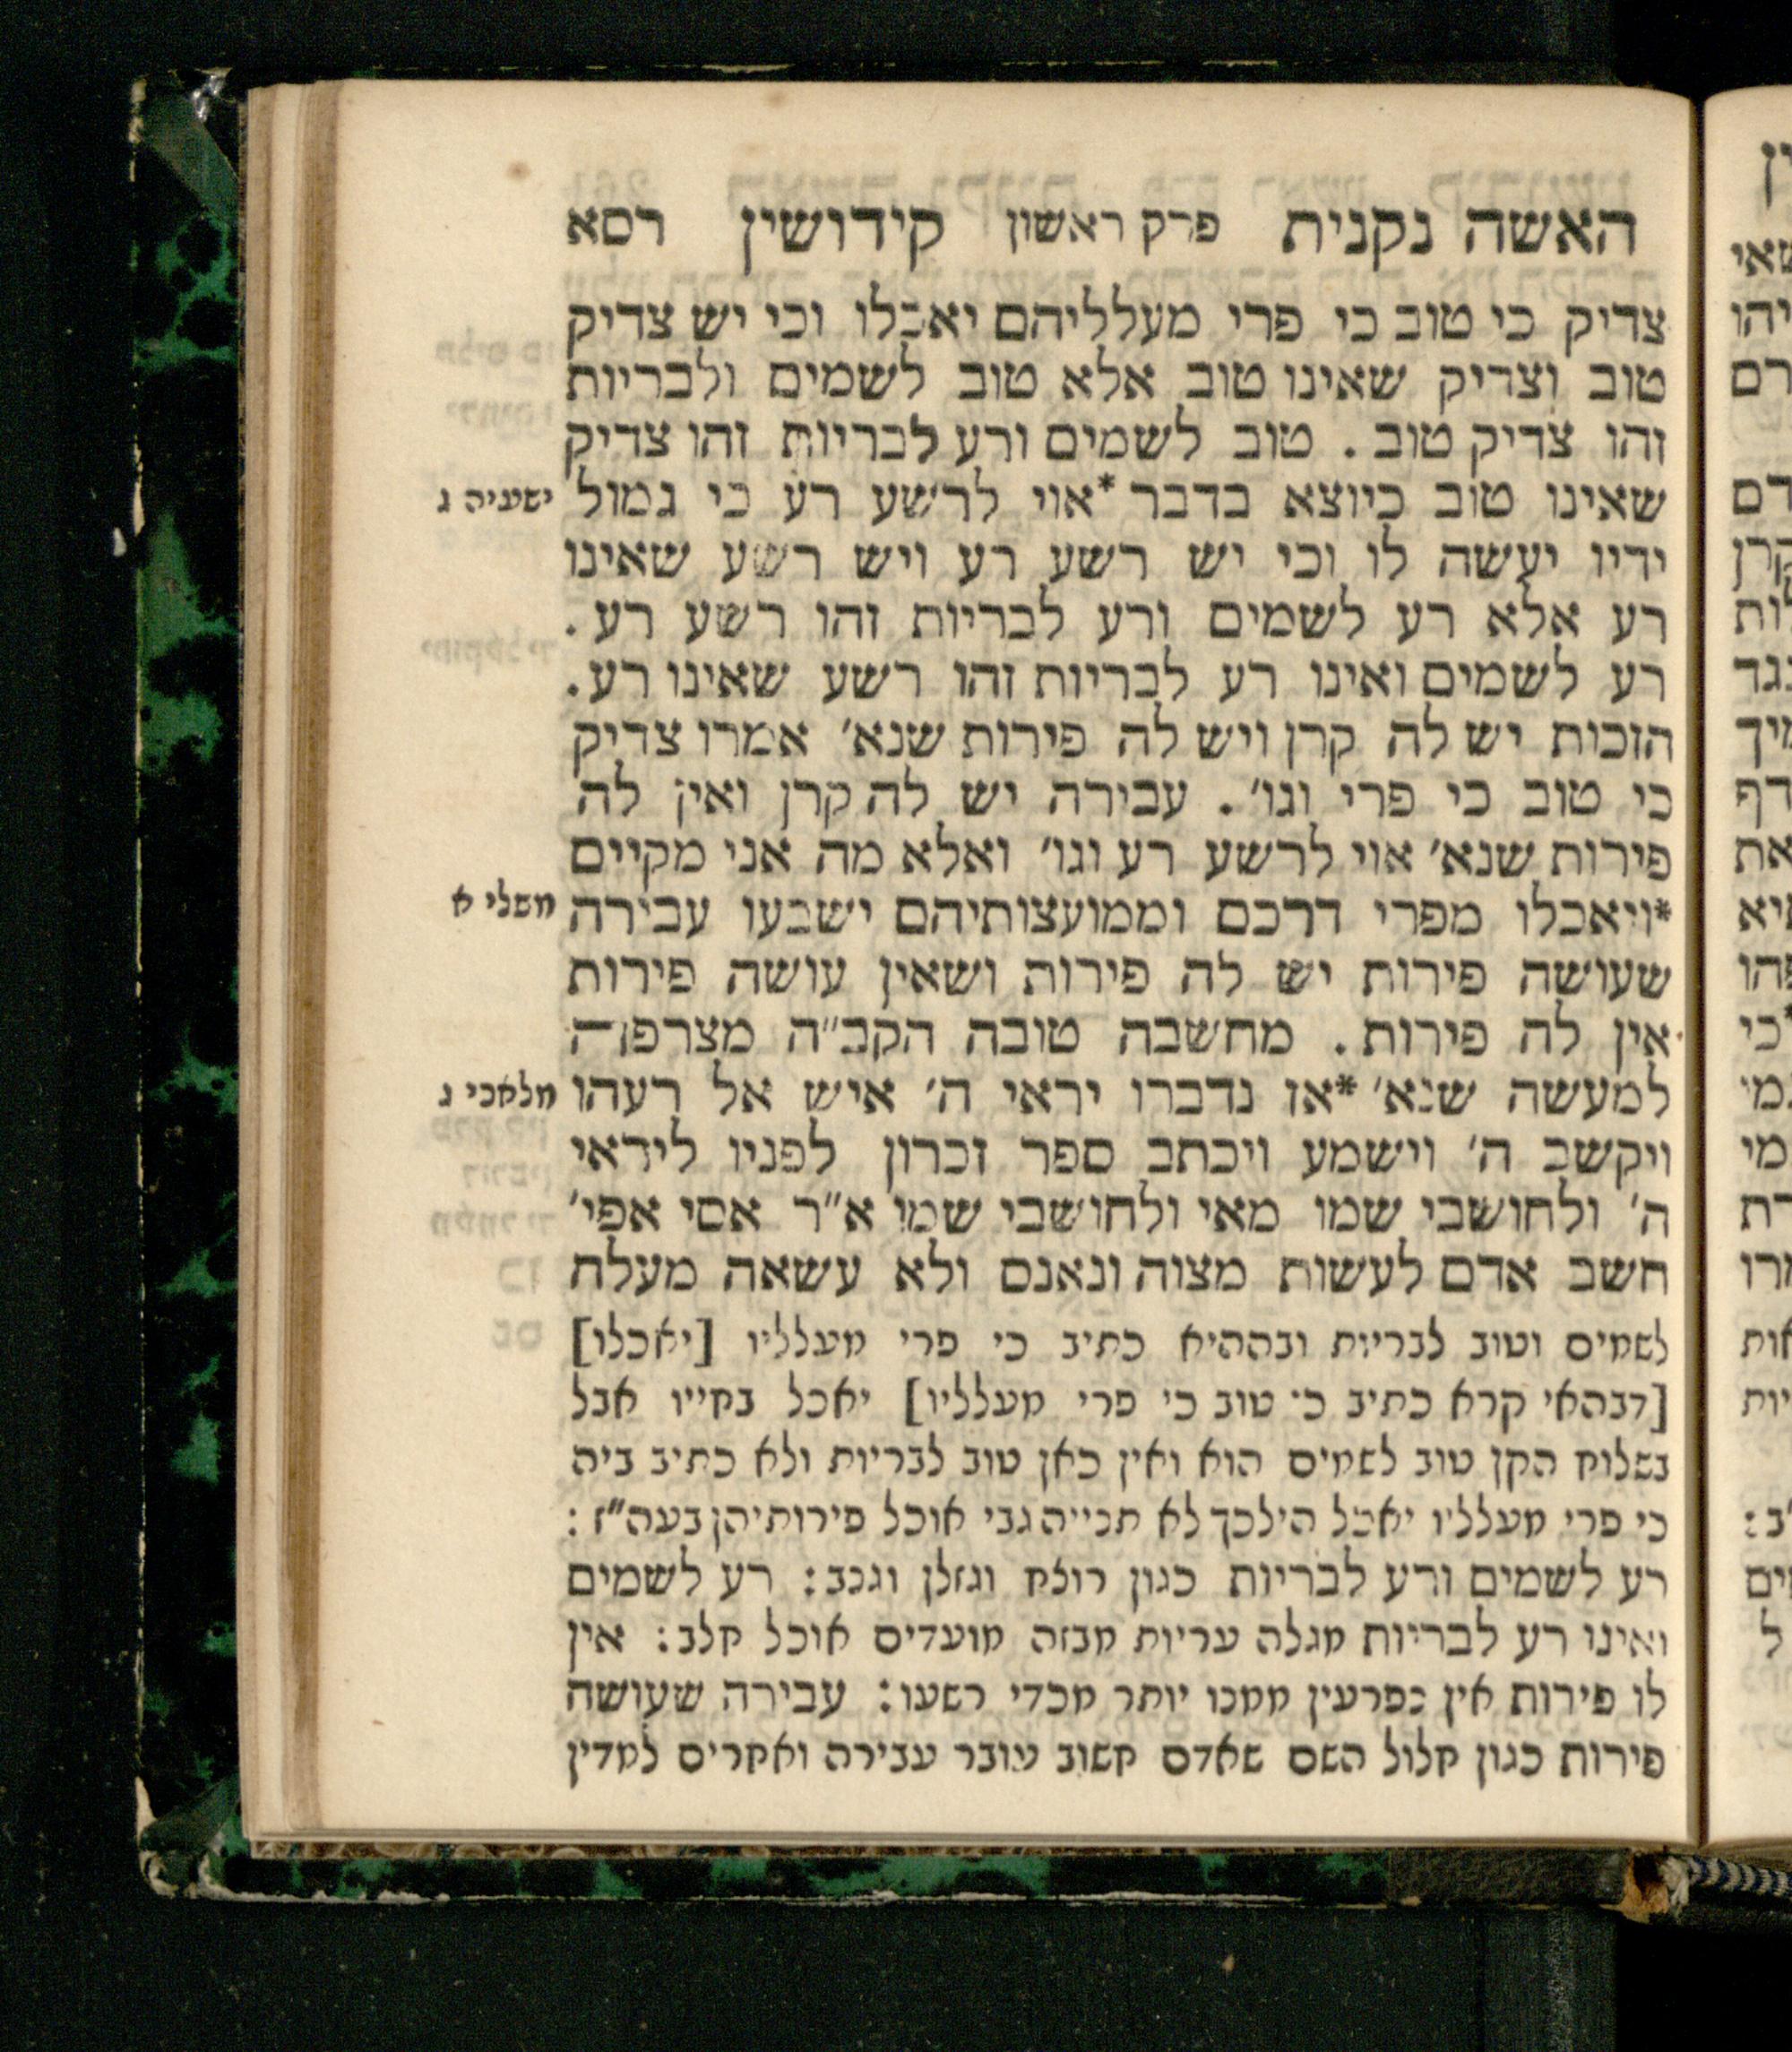 האשה נקנית פרק ראשון קידושין רסא
צדיק כי טוב כי פרי מעלליהם יאכלו וכי יש צדיק
טוב וצדיק שאינו טוב אלא טוב לשמים ולבריות
זהו צדיק טוב. טוב לשמים ורע לבריות זהו צדיק
שאינו טוב כיוצא בדבר *אוי לרשע רע כי גמול
ישעיה ג
ידיו יעשה לו וכי יש רשע רע ויש רשע שאינו
רע אלא רע לשמים ורע לבריות זהו רשע רע.
רע לשמים ואינו רע לבריות זהו רשע שאינו רע.
הזכות יש לה קרן ויש לה פירות שנא' אמרו צדיק
כי טוב כי פרי וגו'. עבירה יש לה קרן ואין לה
פירות שנא' אוי לרשע רע וגו' ואלא מה אני מקיים
*ויאכלו מפרי דרכם וממועצותיהם ישבעו עבירה
משלי א
שעושה פירות יש לה פירות ושאין עושה פירות
אין לה פירות. מחשבה טובה הקב"ה מצרפה
למעשה שנא' *אז נדברו יראי ה' איש אל רעהו
מלאכי ג
ויקשב ה' וישמע ויכתב ספר זכרון לפניו ליראי
ה' ולחושבי שמו מאי ולחושבי שמו א"ר אסי אפי'
חשב אדם לעשות מצוה ונאנס ולא עשאה מעלה
לשמים וטוב לבריות ובההיא כתיב כי פרי מעלליו [יאכלו]
[דבהאי קרא כתיב כי טוב כי פרי מעלליו] יאכל בחייו אבל
בשלוח הקן טוב לשמים הוא ואין כאן טוב לבריות ולא כתיב ביה
כי פרי מעלליו יאכל הילכך לא תנייה גבי אוכל פירותיהן בעה"ז:
רע לשמים ורע לבריות כגון רוצח וגזלן וגנב: רע לשמים
ואינו רע לבריות מגלה עריות מבזה מועדים אוכל חלב: אין
לו פירות אין נפרעין ממנו יותר מכדי רשעו: עבירה שעושה
פירות כגון חלול השם שאדם חשוב עובר עבירה ואחרים למדין